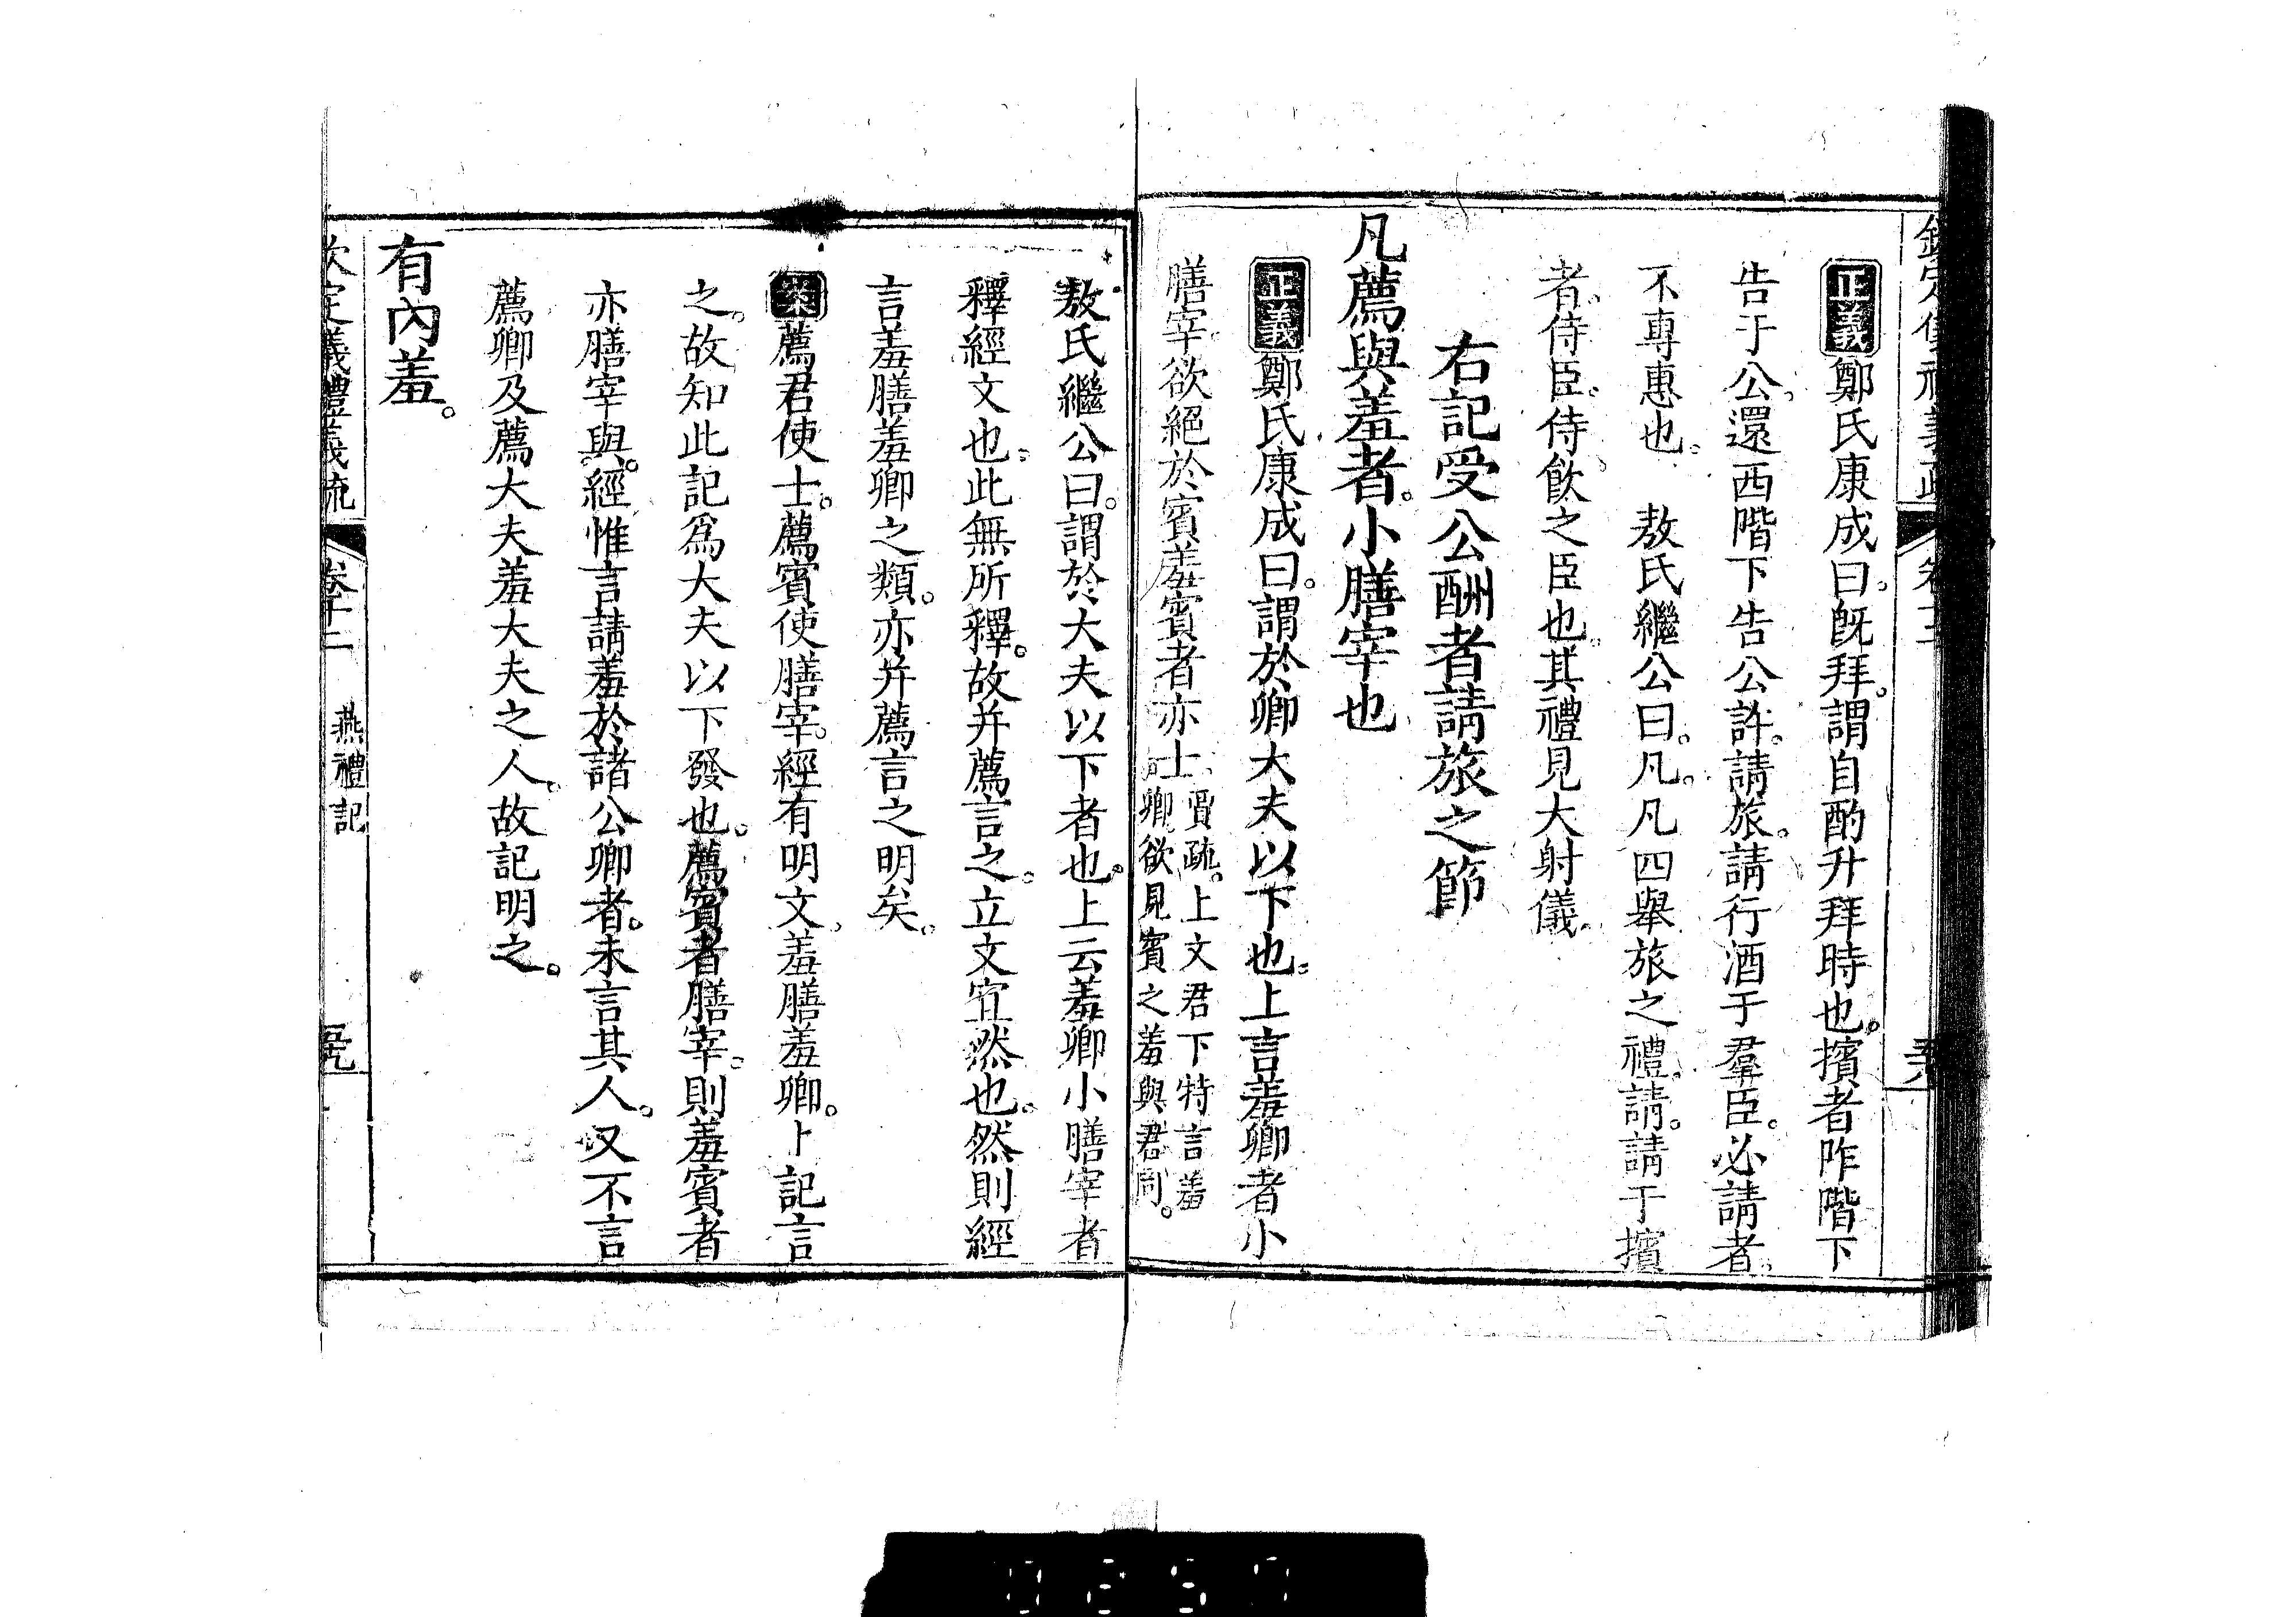 正義鄭氏康成曰。旣拜。謂自酌升拜時也。擯者阼階下
告于公。還西階下告公許。請旅。請行酒于羣臣。必請者。
不專惠也。　敖氏繼公曰。凡。凡四舉旅之禮。請。請于擯
者。侍臣。侍飲之臣也。其禮見大射儀。
右記受公酬者請旅之節
凡薦與羞者。小膳宰也
正義鄭氏康成曰。謂於卿大夫以下也。上言羞卿者小
膳宰欲絕於賓羞賓者亦士
賈疏。上文君下特言羞
卿。欲見賓之羞與君同。
敖氏繼公曰。謂於大夫以下者也。上云羞卿小膳宰者
釋經文也。此無所釋。故并薦言之。立文宜然也。然則經
言羞膳羞卿之類。亦并薦言之明矣。
案薦君使士。薦賓使膳宰。經有明文。羞膳羞卿。上記言
之。故知此記爲大夫以下發也。薦賓者膳宰。則羞賓者
亦膳宰與。經惟言請羞於諸公卿者。未言其人。又不言
薦卿及薦大夫羞大夫之人。故記明之。
有內羞。
欽定儀禮義疏　卷十二　燕禮記